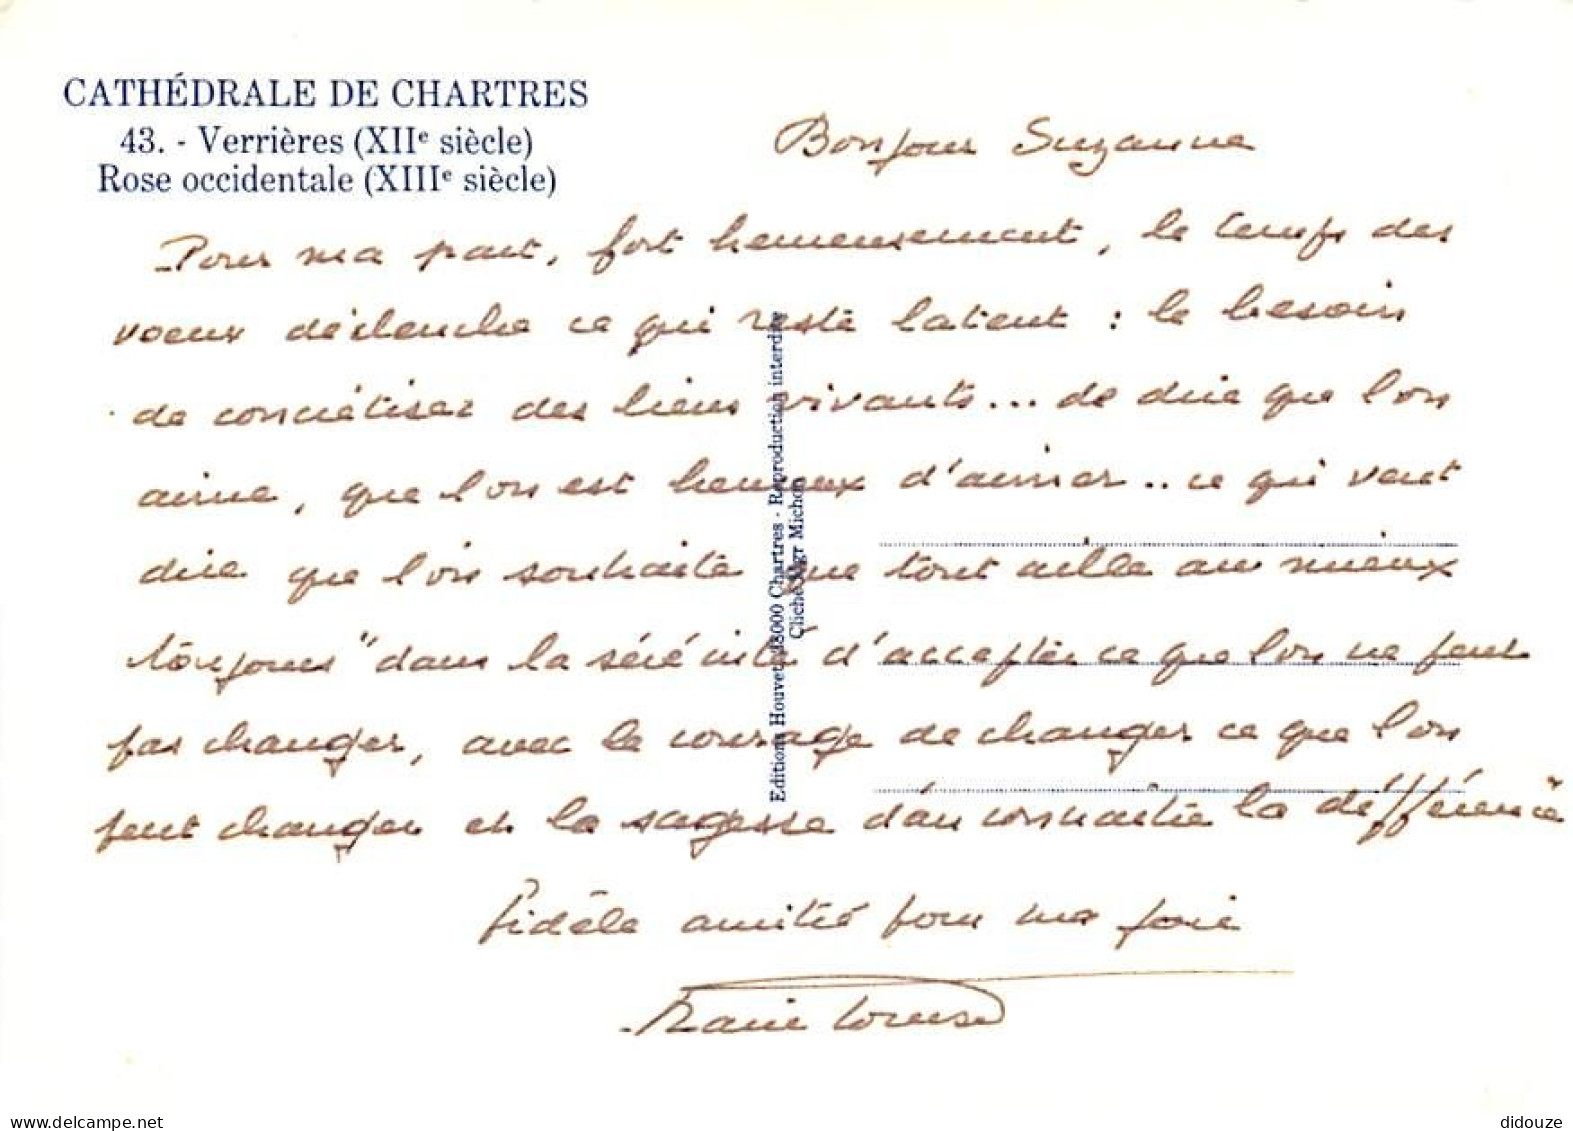 CATHÉDRALE DE CHARTRES
43. - Verrières (XIIe siècle)
Rose occidentale (XIIIe siècle)
Bonjour Suzanne
Pour ma part, fort heureusement, le temps des
voeux déclenche ce qui reste latent : le besoin
de concrétiser des liens vivants... de dire que l'on
aime, que l'on est heureux d'aimer.. ce qui veut
dire que l'on souhaite que tout aille au mieux
toujours "dans la sérénité d'accepter ce que l'on ne peut
pas changer, avec le courage de changer ce que l'on
peut changer et la sagesse d'en connaître la différence"
Fidèle amitié pour ma joie
Marie Louise
Editions Houvet, 28000 Chartres - Reproduction interdite
Cliché Mgr Michon
www.delcampe.net
didouze